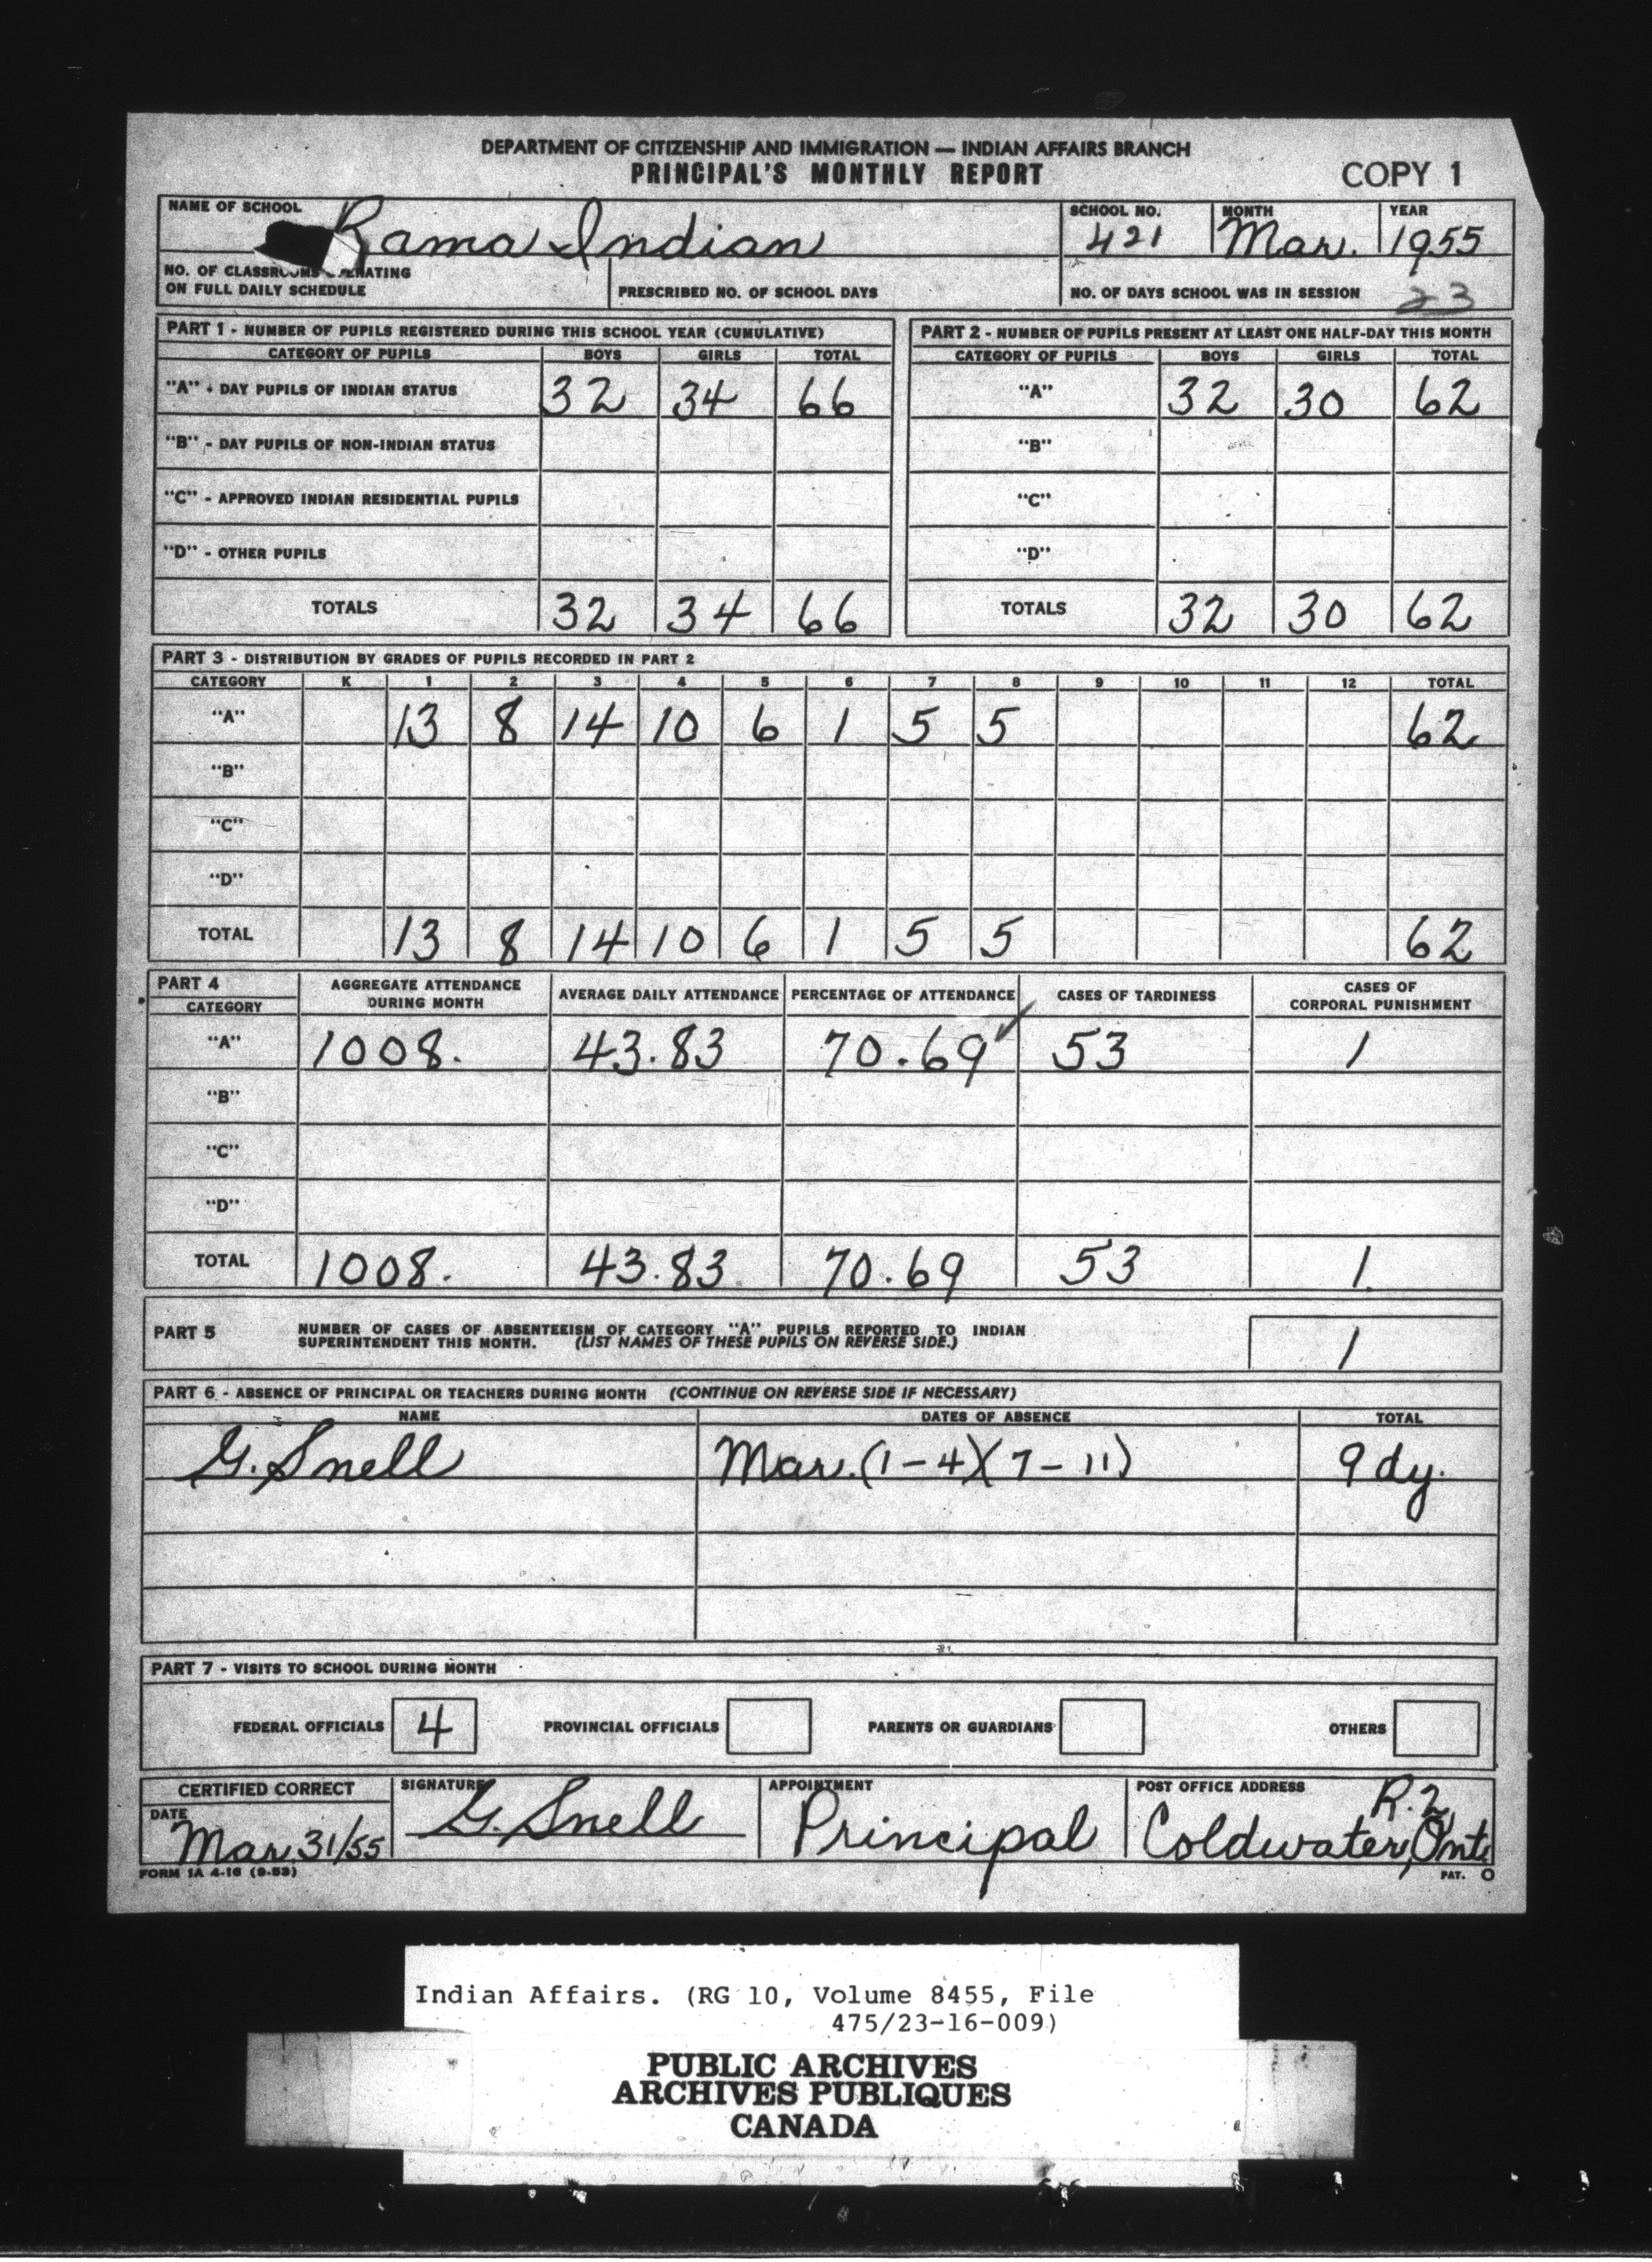 DEPARTMENT OF CITIZENSHIP AND IMMIGRATION — INDIAN AFFAIRS BRANCH
PRINCIPAL'S MONTHLY REPORT
COPY 1
NAME OF SCHOOL Rama Indian SCHOOL NO. 421 MONTH Mar. YEAR 1955
NO. OF CLASSROOMS OPERATING ON FULL DAILY SCHEDULE PRESCRIBED NO. OF SCHOOL DAYS NO. OF DAYS SCHOOL WAS IN SESSION 23
PART 1 - NUMBER OF PUPILS REGISTERED DURING THIS SCHOOL YEAR (CUMULATIVE)
CATEGORY OF PUPILS BOYS GIRLS TOTAL
"A" - DAY PUPILS OF INDIAN STATUS 32 34 66
"B" - DAY PUPILS OF NON-INDIAN STATUS
"C" - APPROVED INDIAN RESIDENTIAL PUPILS
"D" - OTHER PUPILS
TOTALS 32 34 66
PART 2 - NUMBER OF PUPILS PRESENT AT LEAST ONE HALF-DAY THIS MONTH
CATEGORY OF PUPILS BOYS GIRLS TOTAL
"A" 32 30 62
"B"
"C"
"D"
TOTALS 32 30 62
PART 3 - DISTRIBUTION BY GRADES OF PUPILS RECORDED IN PART 2
CATEGORY K 1 2 3 4 5 6 7 8 9 10 11 12 TOTAL
"A" 13 8 14 10 6 1 5 5 62
"B"
"C"
"D"
TOTAL 13 8 14 10 6 1 5 5 62
PART 4
CATEGORY AGGREGATE ATTENDANCE DURING MONTH AVERAGE DAILY ATTENDANCE PERCENTAGE OF ATTENDANCE CASES OF TARDINESS CASES OF CORPORAL PUNISHMENT
"A" 1008. 43.83 70.69 ✓ 53 1
"B"
"C"
"D"
TOTAL 1008. 43.83 70.69 53 1.
PART 5 NUMBER OF CASES OF ABSENTEEISM OF CATEGORY "A" PUPILS REPORTED TO INDIAN
SUPERINTENDENT THIS MONTH. (LIST NAMES OF THESE PUPILS ON REVERSE SIDE.) 1
PART 6 - ABSENCE OF PRINCIPAL OR TEACHERS DURING MONTH (CONTINUE ON REVERSE SIDE IF NECESSARY)
NAME DATES OF ABSENCE TOTAL
G. Snell Mar. (1-4)(7-11) 9 dy.
PART 7 - VISITS TO SCHOOL DURING MONTH
FEDERAL OFFICIALS 4 PROVINCIAL OFFICIALS PARENTS OR GUARDIANS OTHERS
CERTIFIED CORRECT SIGNATURE APPOINTMENT POST OFFICE ADDRESS R.2,
DATE Mar. 31/55 G. Snell Principal Coldwater, Ont.
FORM IA 4-16 (9-53)
PAT. O
Indian Affairs. (RG 10, Volume 8455, File
475/23-16-009)
PUBLIC ARCHIVES
ARCHIVES PUBLIQUES
CANADA